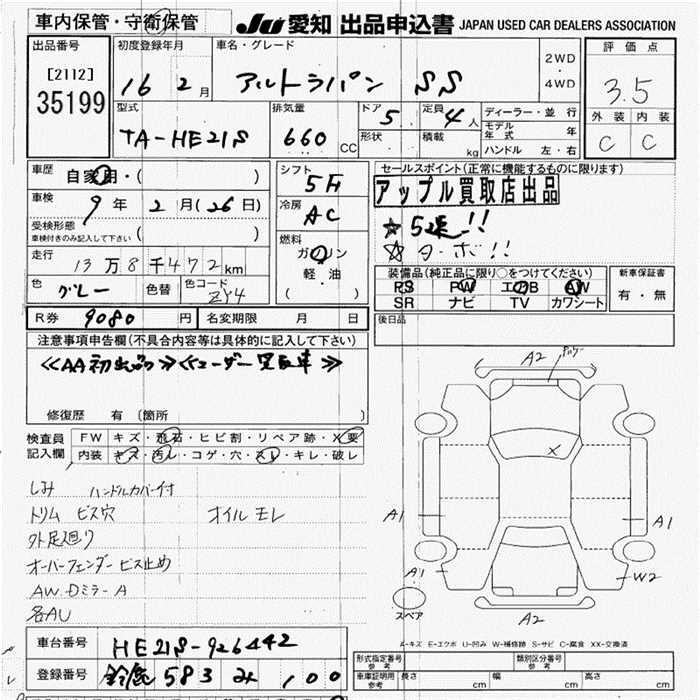 車内保管・守衛保管
JU 愛知 出品申込書 JAPAN USED CAR DEALERS ASSOCIATION
出品番号
[2112]
35199
初度登録年月
16 2月
車名・グレード
アルトラパン SS
2WD
4WD
評価点
3.5
外装 内装
C C
型式
TA-HE21S
排気量
660 CC
ドア 5
形状
定員 4人
積載 kg
ディーラー・並行
モデル年式 年
ハンドル 左・右
車歴
自家用・( )
車検
9年 2月(26日)
受検形態
車検付きのみ記入して下さい ( )
走行
13万8千472km
色 グレー 色替 色コード ZY4
シフト
5F
冷房
AC
燃料
ガソリン
軽・油
( )
セールスポイント(正常に機能するものに限ります)
アップル買取店出品
☆5速!!
☆ターボ!!
装備品(純正品に限り○をつけてください)
PS PW エアB AW
SR ナビ TV カワシート
新車保証書
有・無
R券 9080円 名変期限 月 日
後日品
注意事項申告欄(不具合内容等は具体的に記入して下さい)
≪AA初出品≫≪ユーザー買取車≫
修復歴 有 (箇所 )
検査員記入欄
FW キズ・飛石・ヒビ割・リペア跡・X要
内装 キズ・汚レ・コゲ・穴・スレ・キレ・破レ
しみ ハンドルカバー付
トリム ビス穴 オイルモレ
外足廻り
オーバーフェンダービス止め
AW.Dミラー A
各AU
A2
X
A1
A1
A1
W2
A2
スペア
A-キズ E-エクボ U-凹み W-補修跡 S-サビ C-腐食 XX-交換済
車台番号 HE21S-926442
登録番号 鈴鹿 583 み 100
形式指定番号 参考
類別区分番号 参考
車庫証明用 参考 長さ cm 幅 cm 高さ cm